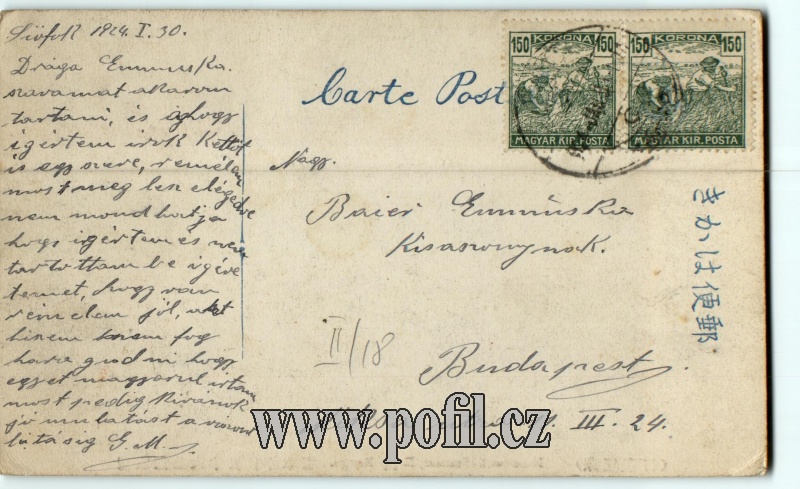 Siófok 1924. I. 30.
Drága Emmuska.
szavamat akarom
tartani, és ahogy
igértem irok Kettőt
is egyszerre, remélem
most meg lesz elégedve
nem mondhatja
hogy igértem és nem
tartottam be igére
temet, hogy van
remélem jól, mert
hiszem nem fog
haragudni hogy
egyet magyarul irtam
most pedig kivánok
jó mulatást a viszont
látásig G. M.
Carte Post
150 KORONA 150
MAGYAR KIR. POSTA
150 KORONA 150
MAGYAR KIR. POSTA
Nagy.
Baier Emmuska
Kisasszonynak.
Budapest.
III. 24.
II/18
きかは便郵
www.pofil.cz